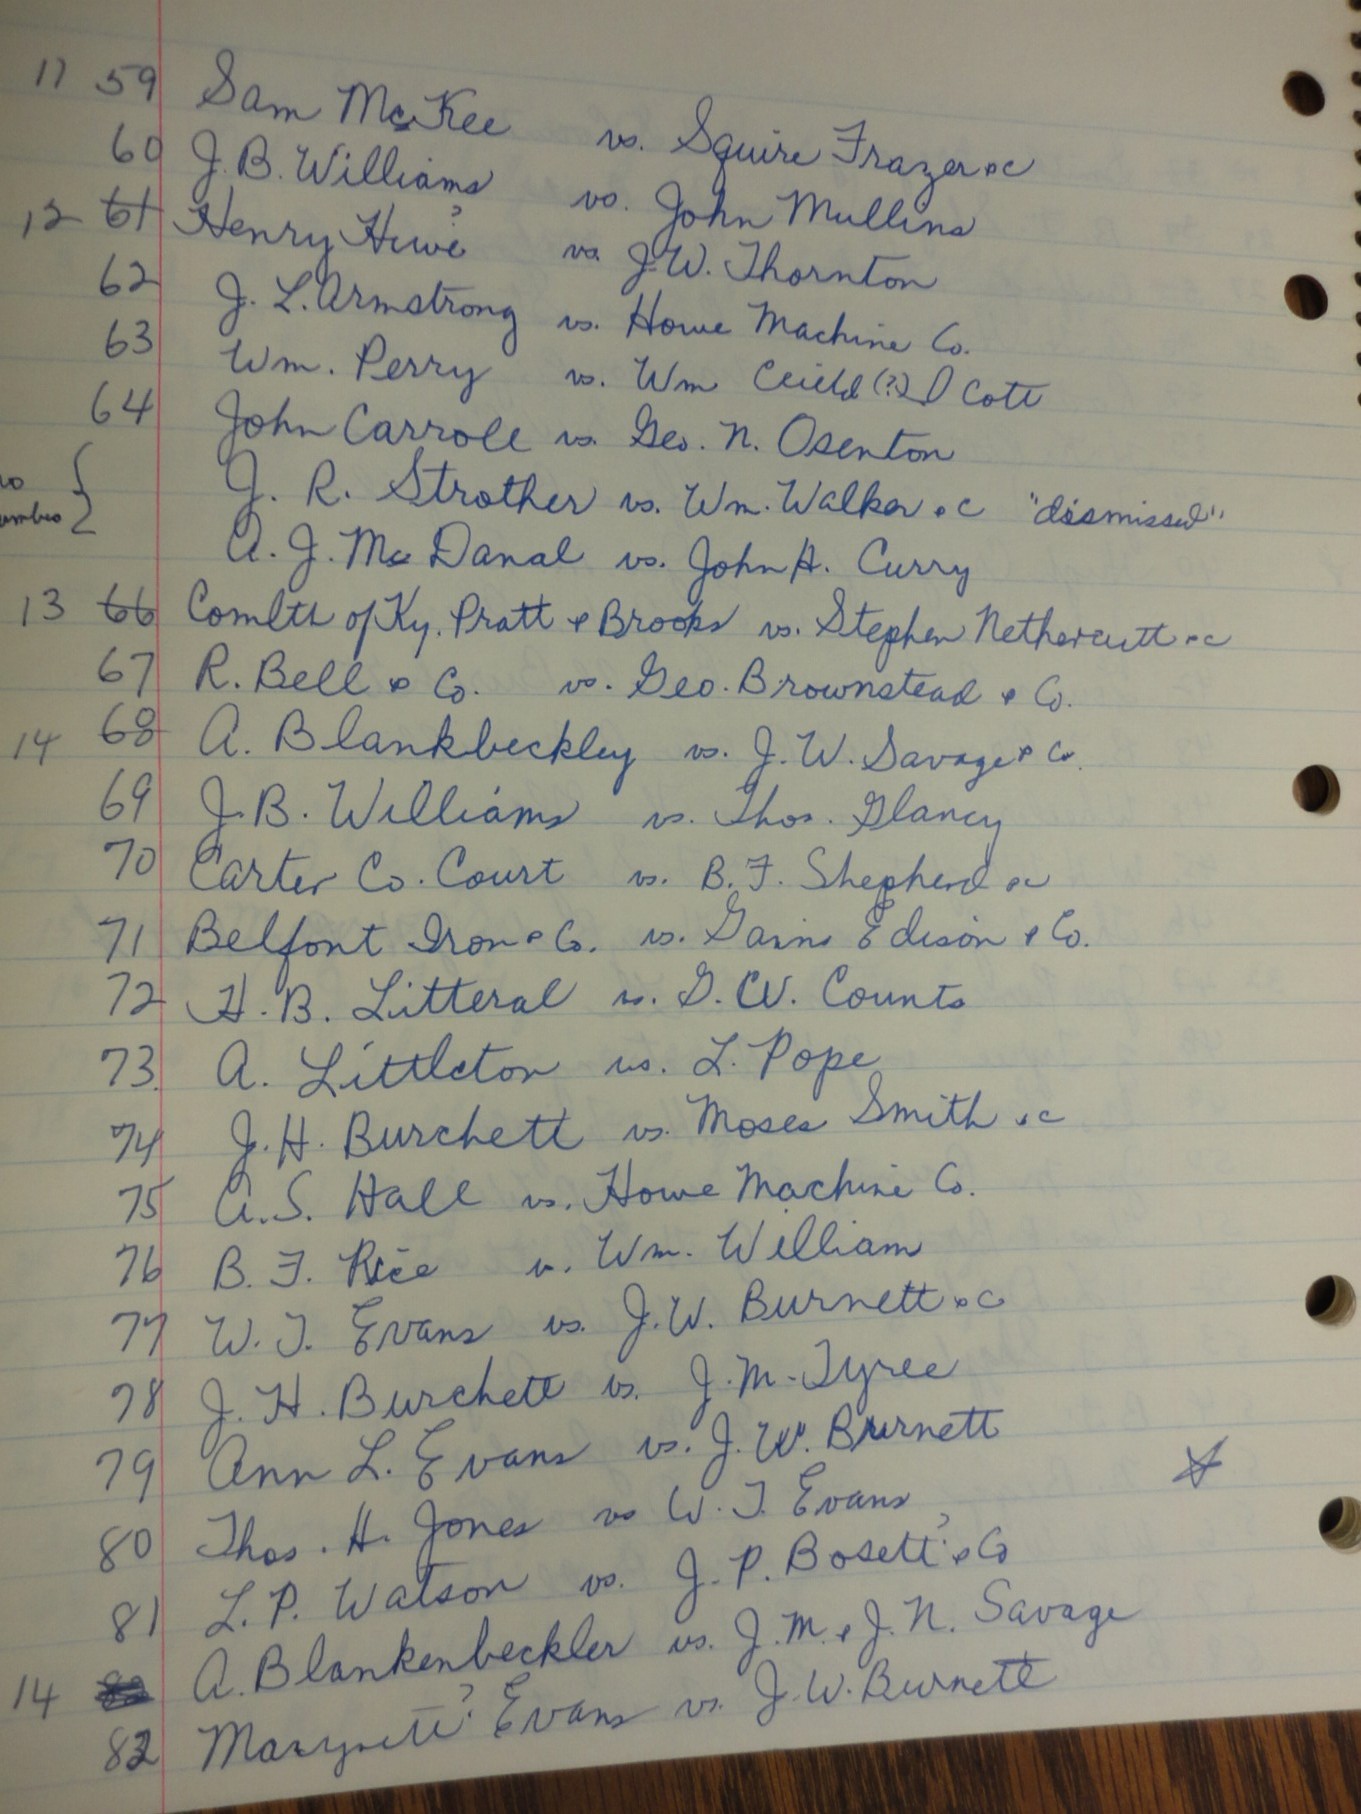 11 59 Sam McKee vs. Squire Frazer &c
60 J. B. Williams vs. John Mullins
12 61 Henry Hiwe? vs. J. W. Thornton
62 J. L. Armstrong vs. Howe Machine Co.
63 Wm. Perry vs. Wm (?)
64 John Carroll vs. Geo. N. Osenton
J. R. Strother vs. Wm. Walker &c "dismissed"
A. J. McDanal vs. John H. Curry
13 66 Comlth of Ky. Pratt & Brooks vs. Stephen Nethercutt &c
67 R. Bell & Co. vs. Geo. Brownstead & Co.
14 68 A. Blankbeckley vs. J. W. Savage & Co.
69 J. B. Williams vs. Thos. Glancy
70 Carter Co. Court vs. B. F. Shepherd &c
71 Belfont Iron & Co. vs. Gains Edison & Co.
72 H. B. Litteral vs. G. W. Counts
73. A. Littleton vs. L. Pope
74 J. H. Burchett vs. Moses Smith &c
75 A. S. Hall vs. Howe Machine Co.
76 B. F. Rice v. Wm. William
77 W. T. Evans vs. J. W. Burnett &c
78 J. H. Burchett vs. J. M. Tyree
79 Ann L. Evans vs. J. W. Burnett
80 Thos. H. Jones vs W. T. Evans
81 L. P. Watson vs. J. P. Bosett? & Co
14 A. Blankenbeckler vs. J. M. & J. N. Savage
82 Evans vs. J. W. Burnett